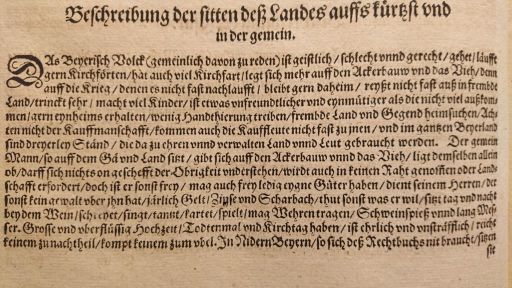 Beschreibung der sitten deß Landes auffs kürtzst vnd
in der gemein.
DAs Beyerisch Volck (gemeinlich davon zu reden) ist geistlich / schlecht vnnd gerecht / gehet / läufft
gern Kirchförten / hat auch viel Kirchfart / legt sich mehr auff den Ackerbauw vnd das Vieh / denn
auff die Krieg / denen es nicht fast nachlaufft / bleibt gern daheim / reyßt nicht fast auß in frembde
Land / trinckt sehr / macht viel Kinder / ist etwas vnfreundlicher vnd eynmütiger als die nicht viel außkom-
men / gern eynheims erhalten / wenig Handthierung treiben / frembde Land vnd Gegend heimsuchen / Ach-
ten nicht der Kauffmanschafft / kommen auch die Kauffleute nicht fast zu jnen / vnd im gantzen Beyerland
sind dreyerley Ständ / die da zu ehren vnnd verwalten Land vnnd Leut gebraucht werden. Der gemein
Mann / so auff dem Gä vnd Land sitzt / gibt sich auff den Ackerbauw vnnd das Vieh / ligt demselben allein
ob / darff sich nichts on geschefft der Obrigkeit vnderstehen / wirdt auch in keinen Raht genoffen oder Land-
schafft erfordert / doch ist er sonst frey / mag auch frey ledig eygne Güter haben / dient seinem Herren / der
sonst kein gewalt vber jhn hat / järlich Gelt / Zinß vnd Scharbach / thut sonst was er wil / sitzt tag vnd nacht
bey dem Wein / schreyet / singt / tantzt / kartet / spielt / mag Wehren tragen / Schweinspieß vnnd lang Mes-
ser. Grosse vnd vberflüssig Hochzeit / Todtenmal vnd Kirchtag haben / ist ehrlich vnd vnsträfflich / reicht
keinem zu nachtheil / kompt keinem zum vbel. In Nidern Beyern / so sich deß Rechtbuchs nit braucht / sitzen
sie